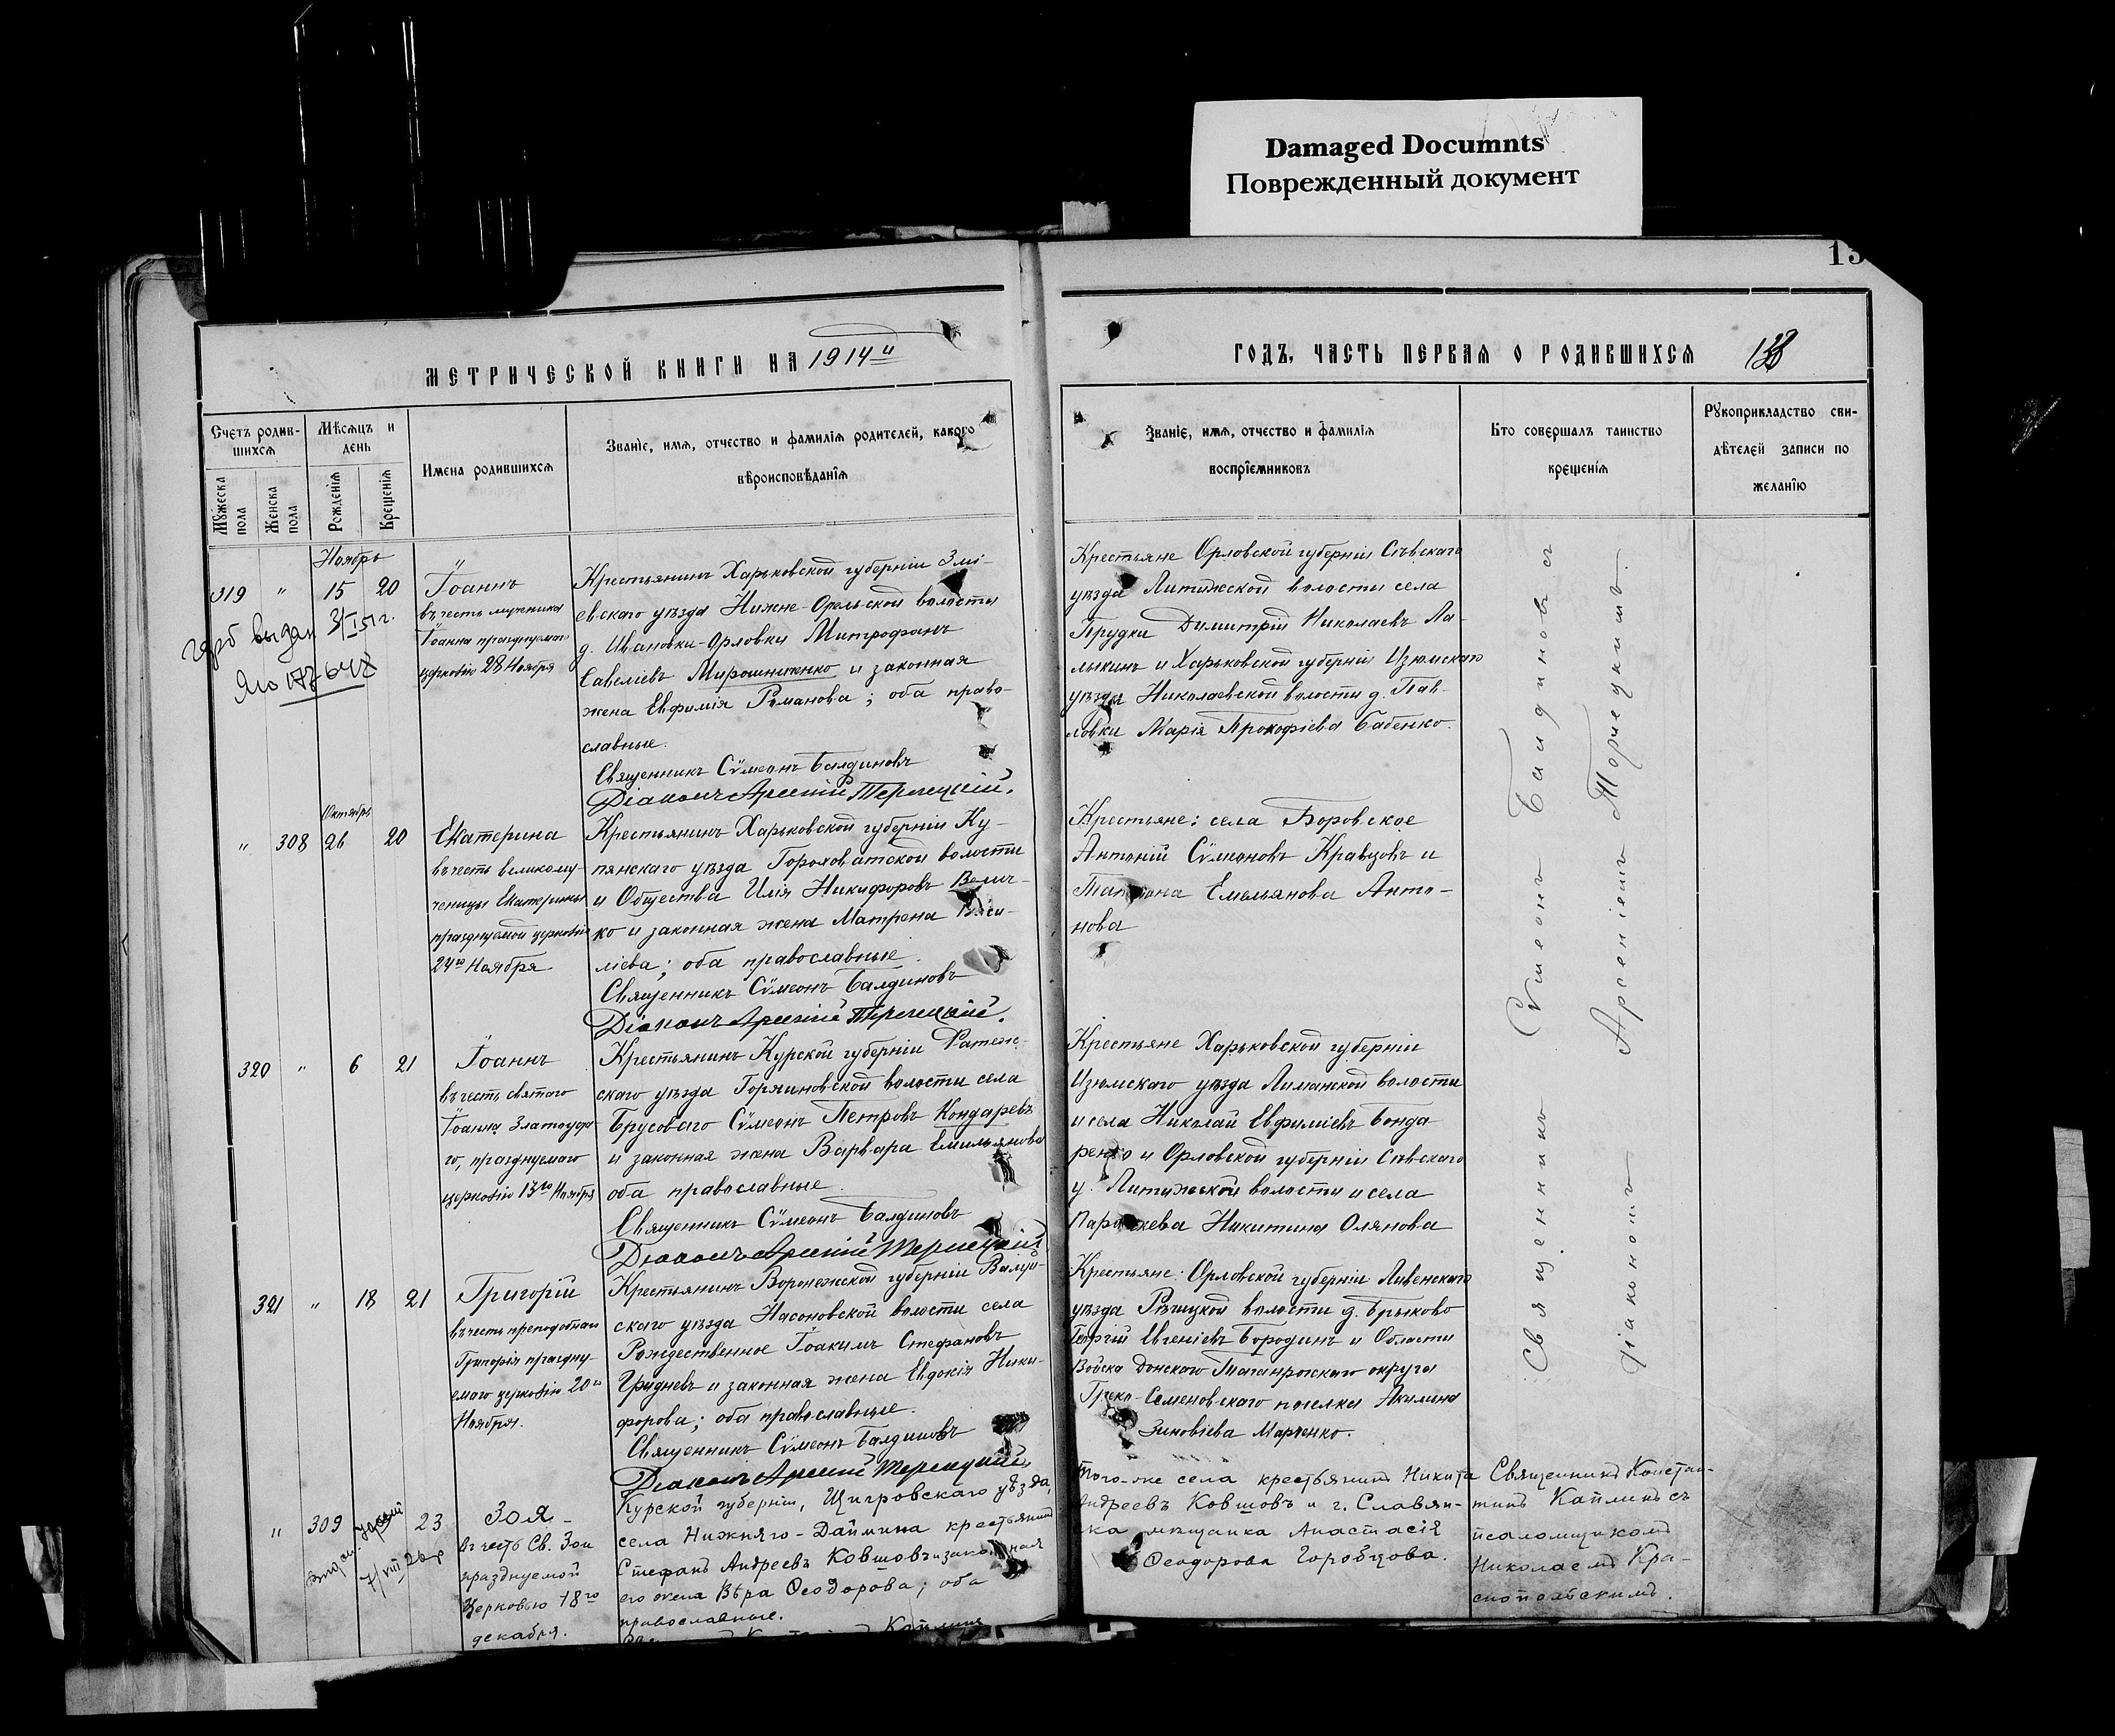 Damaged Documnts
Поврежденный документ
13
МЕТРИЧЕСКОЙ КНИГИ НА 1914 й
ГОДЪ, ЧАСТЬ ПЕРВАЯ О РОДИВШИХСЯ
Счетъ родив-
шихся
Мѣсяцъ и
день
Мужеска пола
Женска пола
Рожденія
Крещенія
Имена родившихся
Званіе, имя, отчество и фамилія родителей, какого
вѣроисповѣданія
Званіе, имя, отчество и фамилія
воспріемниковъ
Кто совершалъ таинство
крещенія
Рукоприкладство сви-
дѣтелей записи по
желанію
Ноябрь
319 " 15 20
выдан 3/I 51 г.
Іоаннъ
въ честь мученика
Іоанна празднуемаго
церковію 28 Ноября
Крестьянинъ Харьковской губерніи Змі-
евскаго уѣзда Нижне-Орельской волости
д. Ивановки-Орловки Митрофанъ
Савеліевъ Мирошниченко и законная
жена Евфимія Романова; оба право-
славные.
Священникъ Сѵмеонъ Балдиновъ
Діаконъ Арсеній Торлецкій.
Крестьяне Орловской губерніи Сѣвскаго
уѣзда Литижской волости села
Прудки Димитрій Николаевъ Ла-
лыкинъ и Харьковской губерніи Изюмскаго
уѣзда Николаевской волости д. Пав-
ловки Марія Прокофіева Бабенко.
Октября
" 308 26 20
Екатерина
въ честь великому-
ченицы Екатерины
празднуемой церковію
24го Ноября
Крестьянинъ Харьковской губерніи Ку-
пянскаго уѣзда Гороховатской волости
и Общества Илія Никифоровъ Велич-
ко и законная жена Матрена Васи-
ліева; оба православные.
Священникъ Сѵмеонъ Балдиновъ
Діаконъ Арсеній Торлецкій.
Крестьяне: села Боровское
Антоній Сѵмеоновъ Кравцовъ и
Татіана Емельянова Анто-
нова
320 " 6 21
Іоаннъ
въ честь святого
Іоанна Златоуста-
го, празднуемаго
церковію 13го Ноября
Крестьянинъ Курской губерніи
скаго уѣзда волости села
Брусоваго Сѵмеонъ Петровъ Кондаревъ
и законная жена Варвара Емильянова
оба православные.
Священникъ Сѵмеонъ Балдиновъ
Діаконъ Арсеній Торлецкій
Крестьяне Харьковской губерніи
Изюмскаго уѣзда Лиманской волости
и села Николай Евфиміевъ Бонда
ренко и Орловской губерніи Сѣвскаго
у. Литижской волости и села
Параскева Никитина Олянова
321 " 18 21
Григорій
въ честь преподобнаго
Григорія праздну-
емаго церковію 20го
Ноября.
Крестьянинъ Воронежской губерніи Валуй-
скаго уѣзда Насоновской волости села
Рождественное Іоакимъ Стефановъ
Гридневъ и законная жена Евдокія Ники-
форова; оба православные.
Священникъ Сѵмеонъ Балдиновъ
Діаконъ Арсеній Торлецкій
Крестьяне: Орловской губерніи Ливенскаго
уѣзда Рѣчицкой волости д. Брыково
Георгій Евгеніевъ Бородинъ и Области
Войска Донскаго Таганрогскаго округа
Греко-Семеновскаго поселка Акилина
Зиновіева Марченко.
Священникъ Сѵмеонъ Балдиновъ съ
діакономъ Арсеніемъ Торлецкимъ.
" 309 23
7/VIII 26 г
Зоя
въ честь Св. Зои
празднуемой
Церковью 18го
декабря.
Курской губерніи, Щигровскаго уѣзда,
села Нижняго-Даймина крестьянинъ
Стефанъ Андреевъ Ковшовъ и законная
его жена Вѣра Ѳеодорова; оба
православные.
Того-же села крестьянинъ Никита
Андреевъ Ковшовъ и г. Славян-
ска мѣщанка Анастасія
Ѳеодорова Горобцова.
Священникъ Констан-
тинъ Каплинъ съ
псаломщикомъ
Николаемъ Кра-
снопольскимъ.